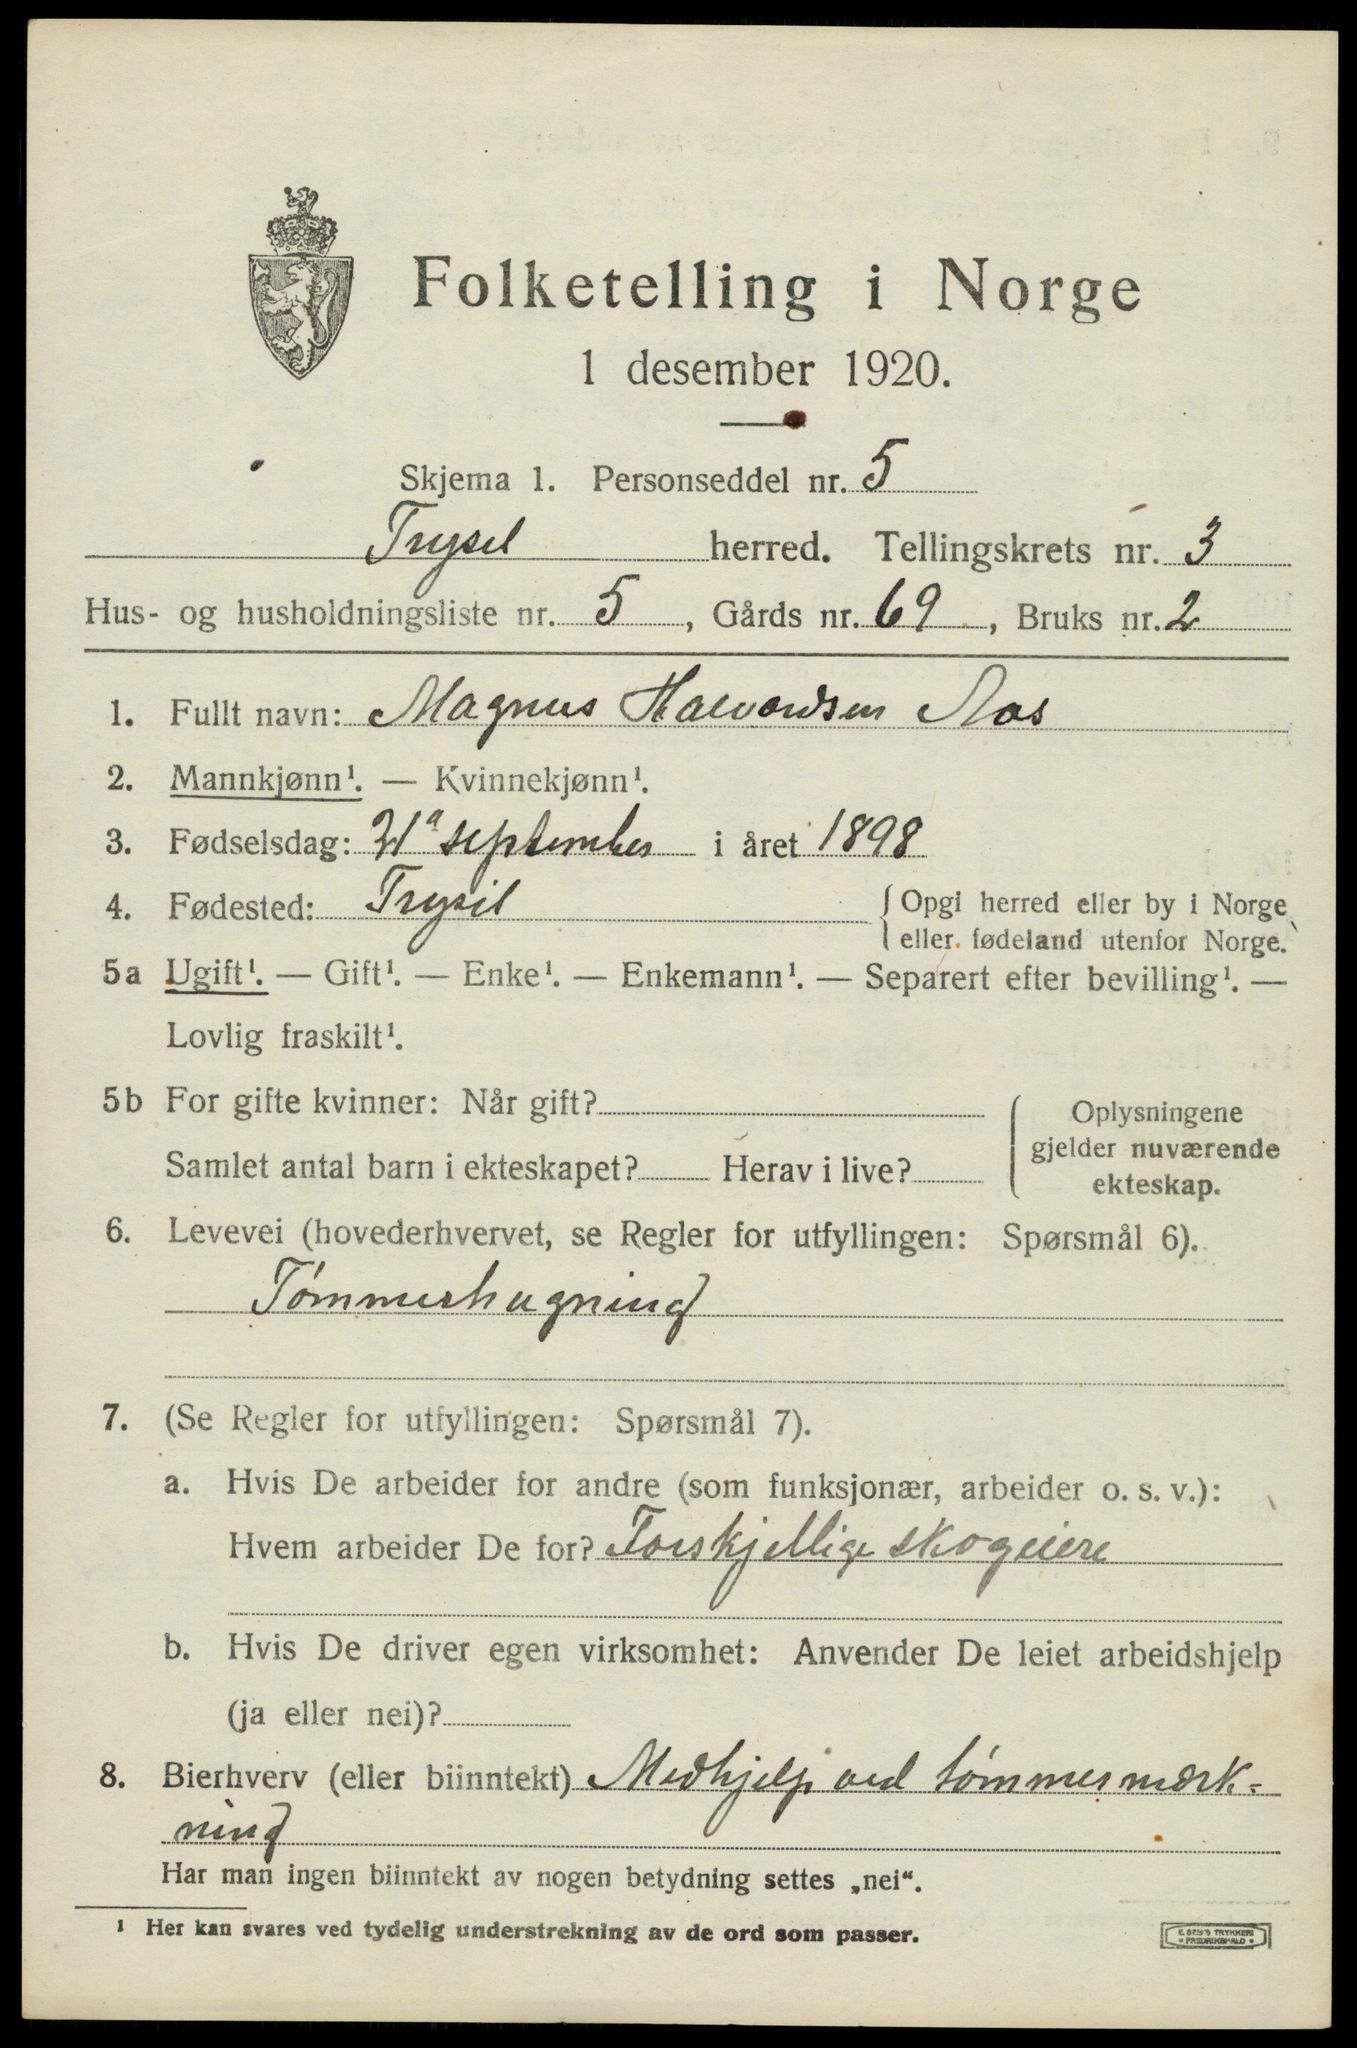 Folketelling i Norge
1 desember 1920.
Skjema 1. Personseddel nr. 5
Trysil herred. Tellingskrets nr. 3
Hus- og husholdningsliste nr. 5, Gårds nr. 69, Bruks nr. 2
1. Fullt navn: Magnus Halvordsen Aas
2. Mannkjønn¹. — Kvinnekjønn¹.
3. Fødselsdag: 21ª september i året 1898
4. Fødested: Trysil { Opgi herred eller by i Norge
eller fødeland utenfor Norge.
5a Ugift¹. — Gift¹. — Enke¹. — Enkemann¹. — Separert efter bevilling¹. —
Lovlig fraskilt¹.
5b For gifte kvinner: Når gift?
Samlet antal barn i ekteskapet? Herav i live?
{ Oplysningene
gjelder nuværende
ekteskap.
6. Levevei (hovederhvervet, se Regler for utfyllingen: Spørsmål 6).
Tømmerhugning
7. (Se Regler for utfyllingen: Spørsmål 7).
a. Hvis De arbeider for andre (som funksjonær, arbeider o. s. v.):
Hvem arbeider De for? Forskjellige skogeiere
b. Hvis De driver egen virksomhet: Anvender De leiet arbeidshjelp
(ja eller nei)?
8. Bierhverv (eller biinntekt) Medhjelp ved tømmermærk-
ning
Har man ingen biinntekt av nogen betydning settes „nei“.
¹ Her kan svares ved tydelig understrekning av de ord som passer.